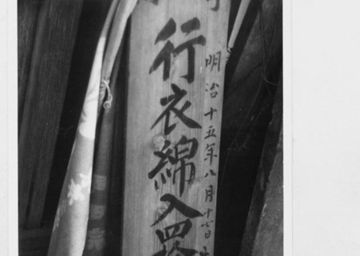 行衣綿入
明治十五年八月十七日